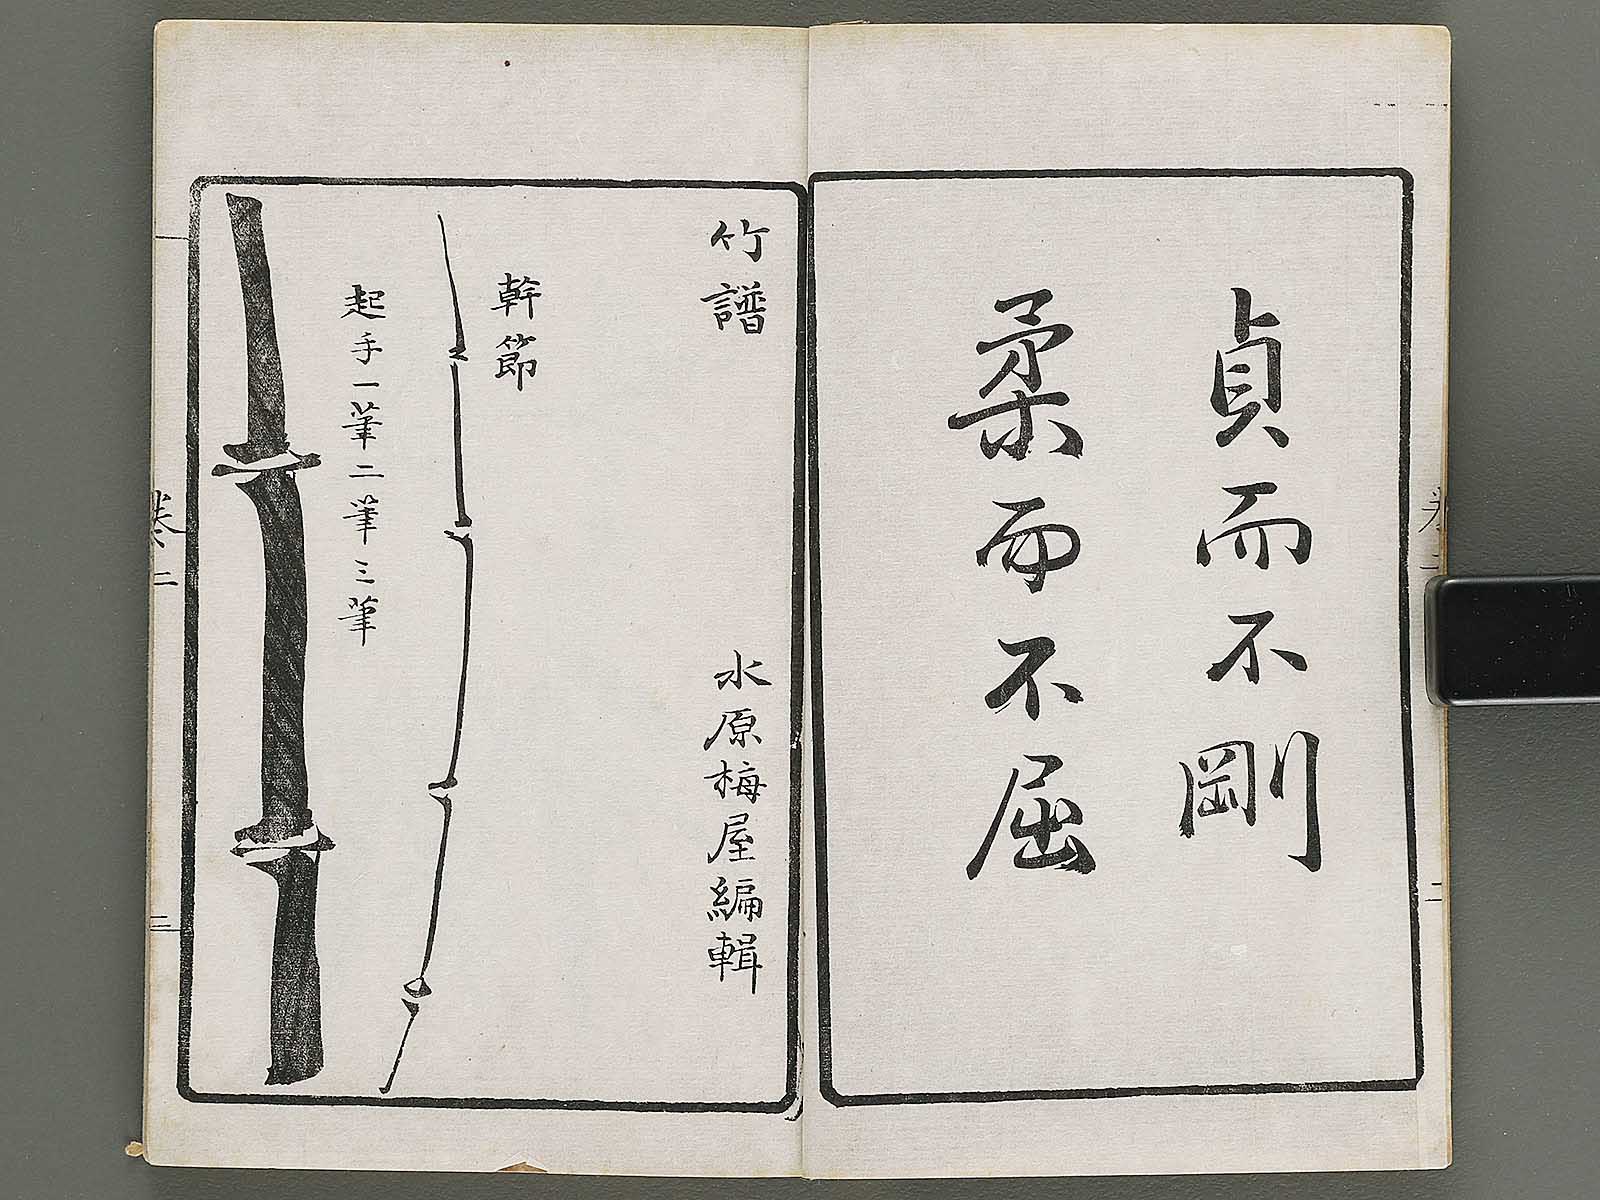 貞而不剛
柔而不屈
竹譜
水原梅屋編輯
幹節
起手一筆二筆三筆
卷二
二